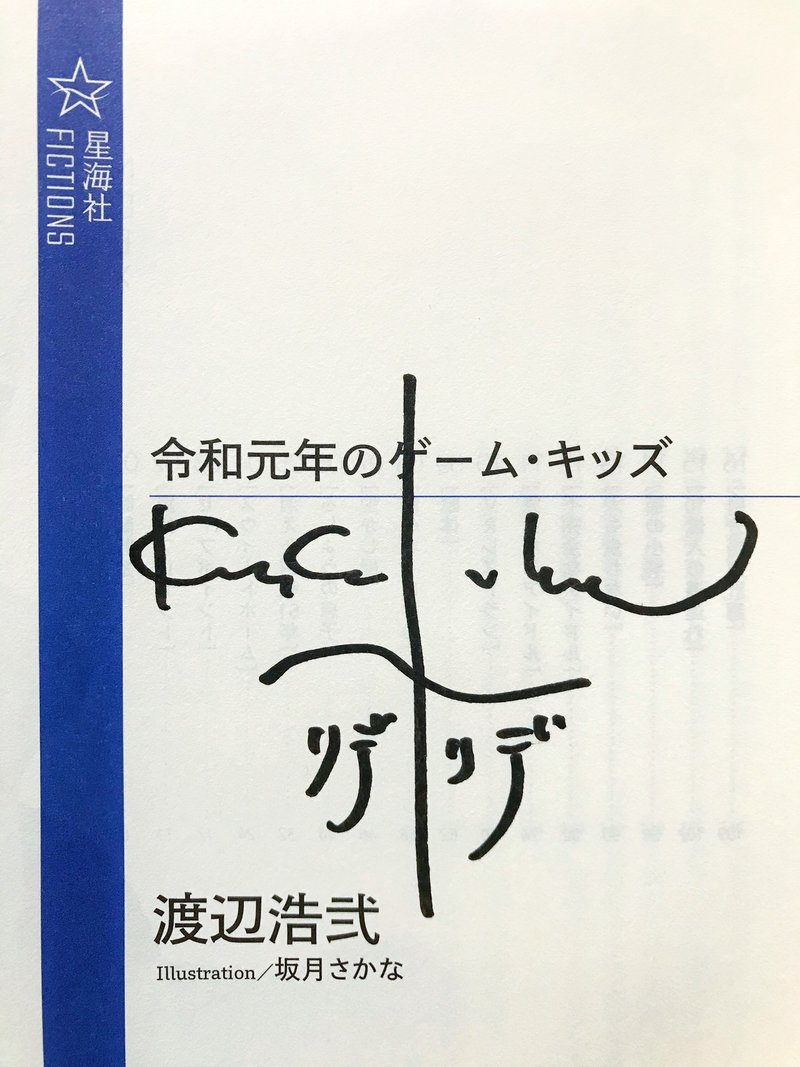 星海社
FICTIONS
令和元年のゲーム・キッズ
リデ リデ
渡辺浩弐
Illustration／坂月さかな